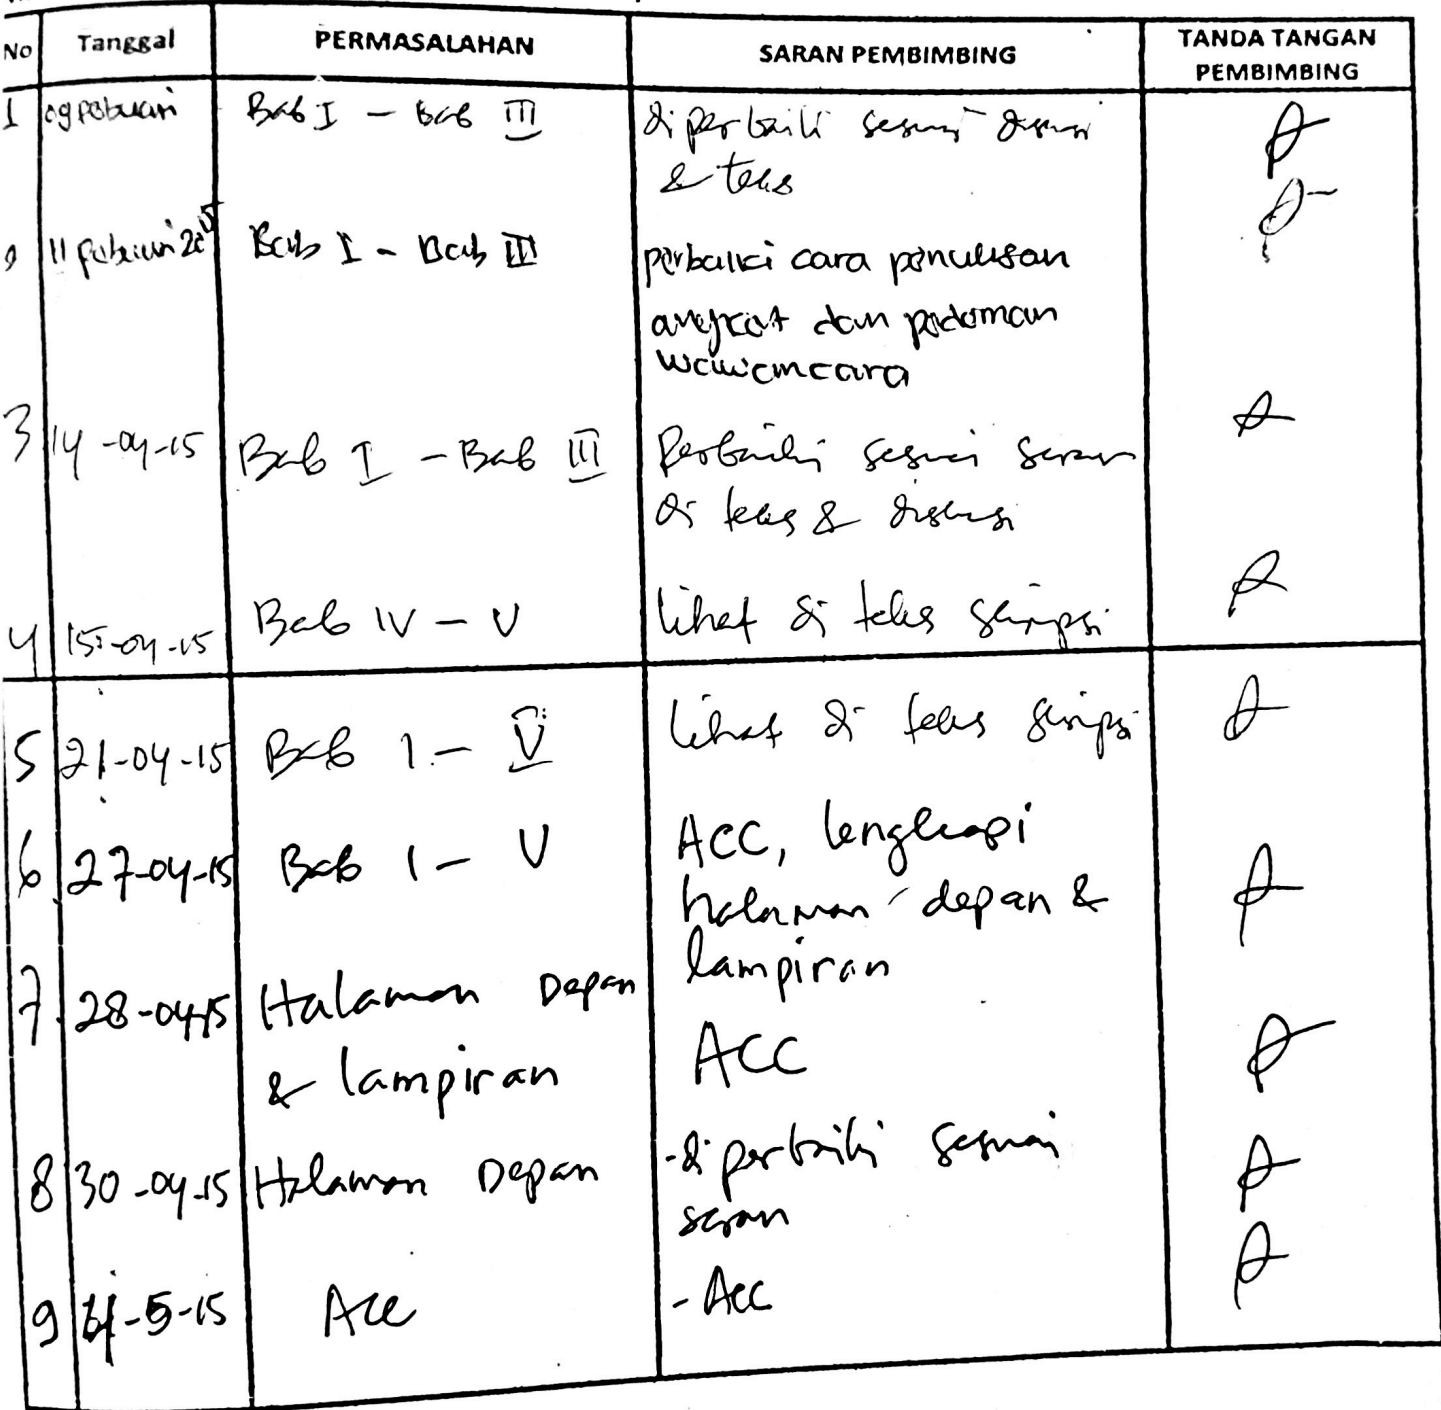 No Tanggal PERMASALAHAN SARAN PEMBIMBING TANDA TANGAN PEMBIMBING
1 09 Februari Bab I - Bab III diperbaiki sesuai diskusi
& teks
2 11 Februari 2015 Bab I - Bab III perbaiki cara penulisan
angkat dan pedoman
wawancara
3 14-04-15 Bab I - Bab III Perbaiki sesuai saran
di teks & diskusi
4 15-04-15 Bab IV - V lihat di teks skripsi
5 21-04-15 Bab I - V lihat di teks skripsi
6 27-04-15 Bab I - V ACC, lengkapi
halaman depan &
lampiran
7 28-04-15 Halaman Depan
& lampiran ACC
8 30-04-15 Halaman Depan - diperbaiki sesuai
saran
9 -5-15 Acc - Acc